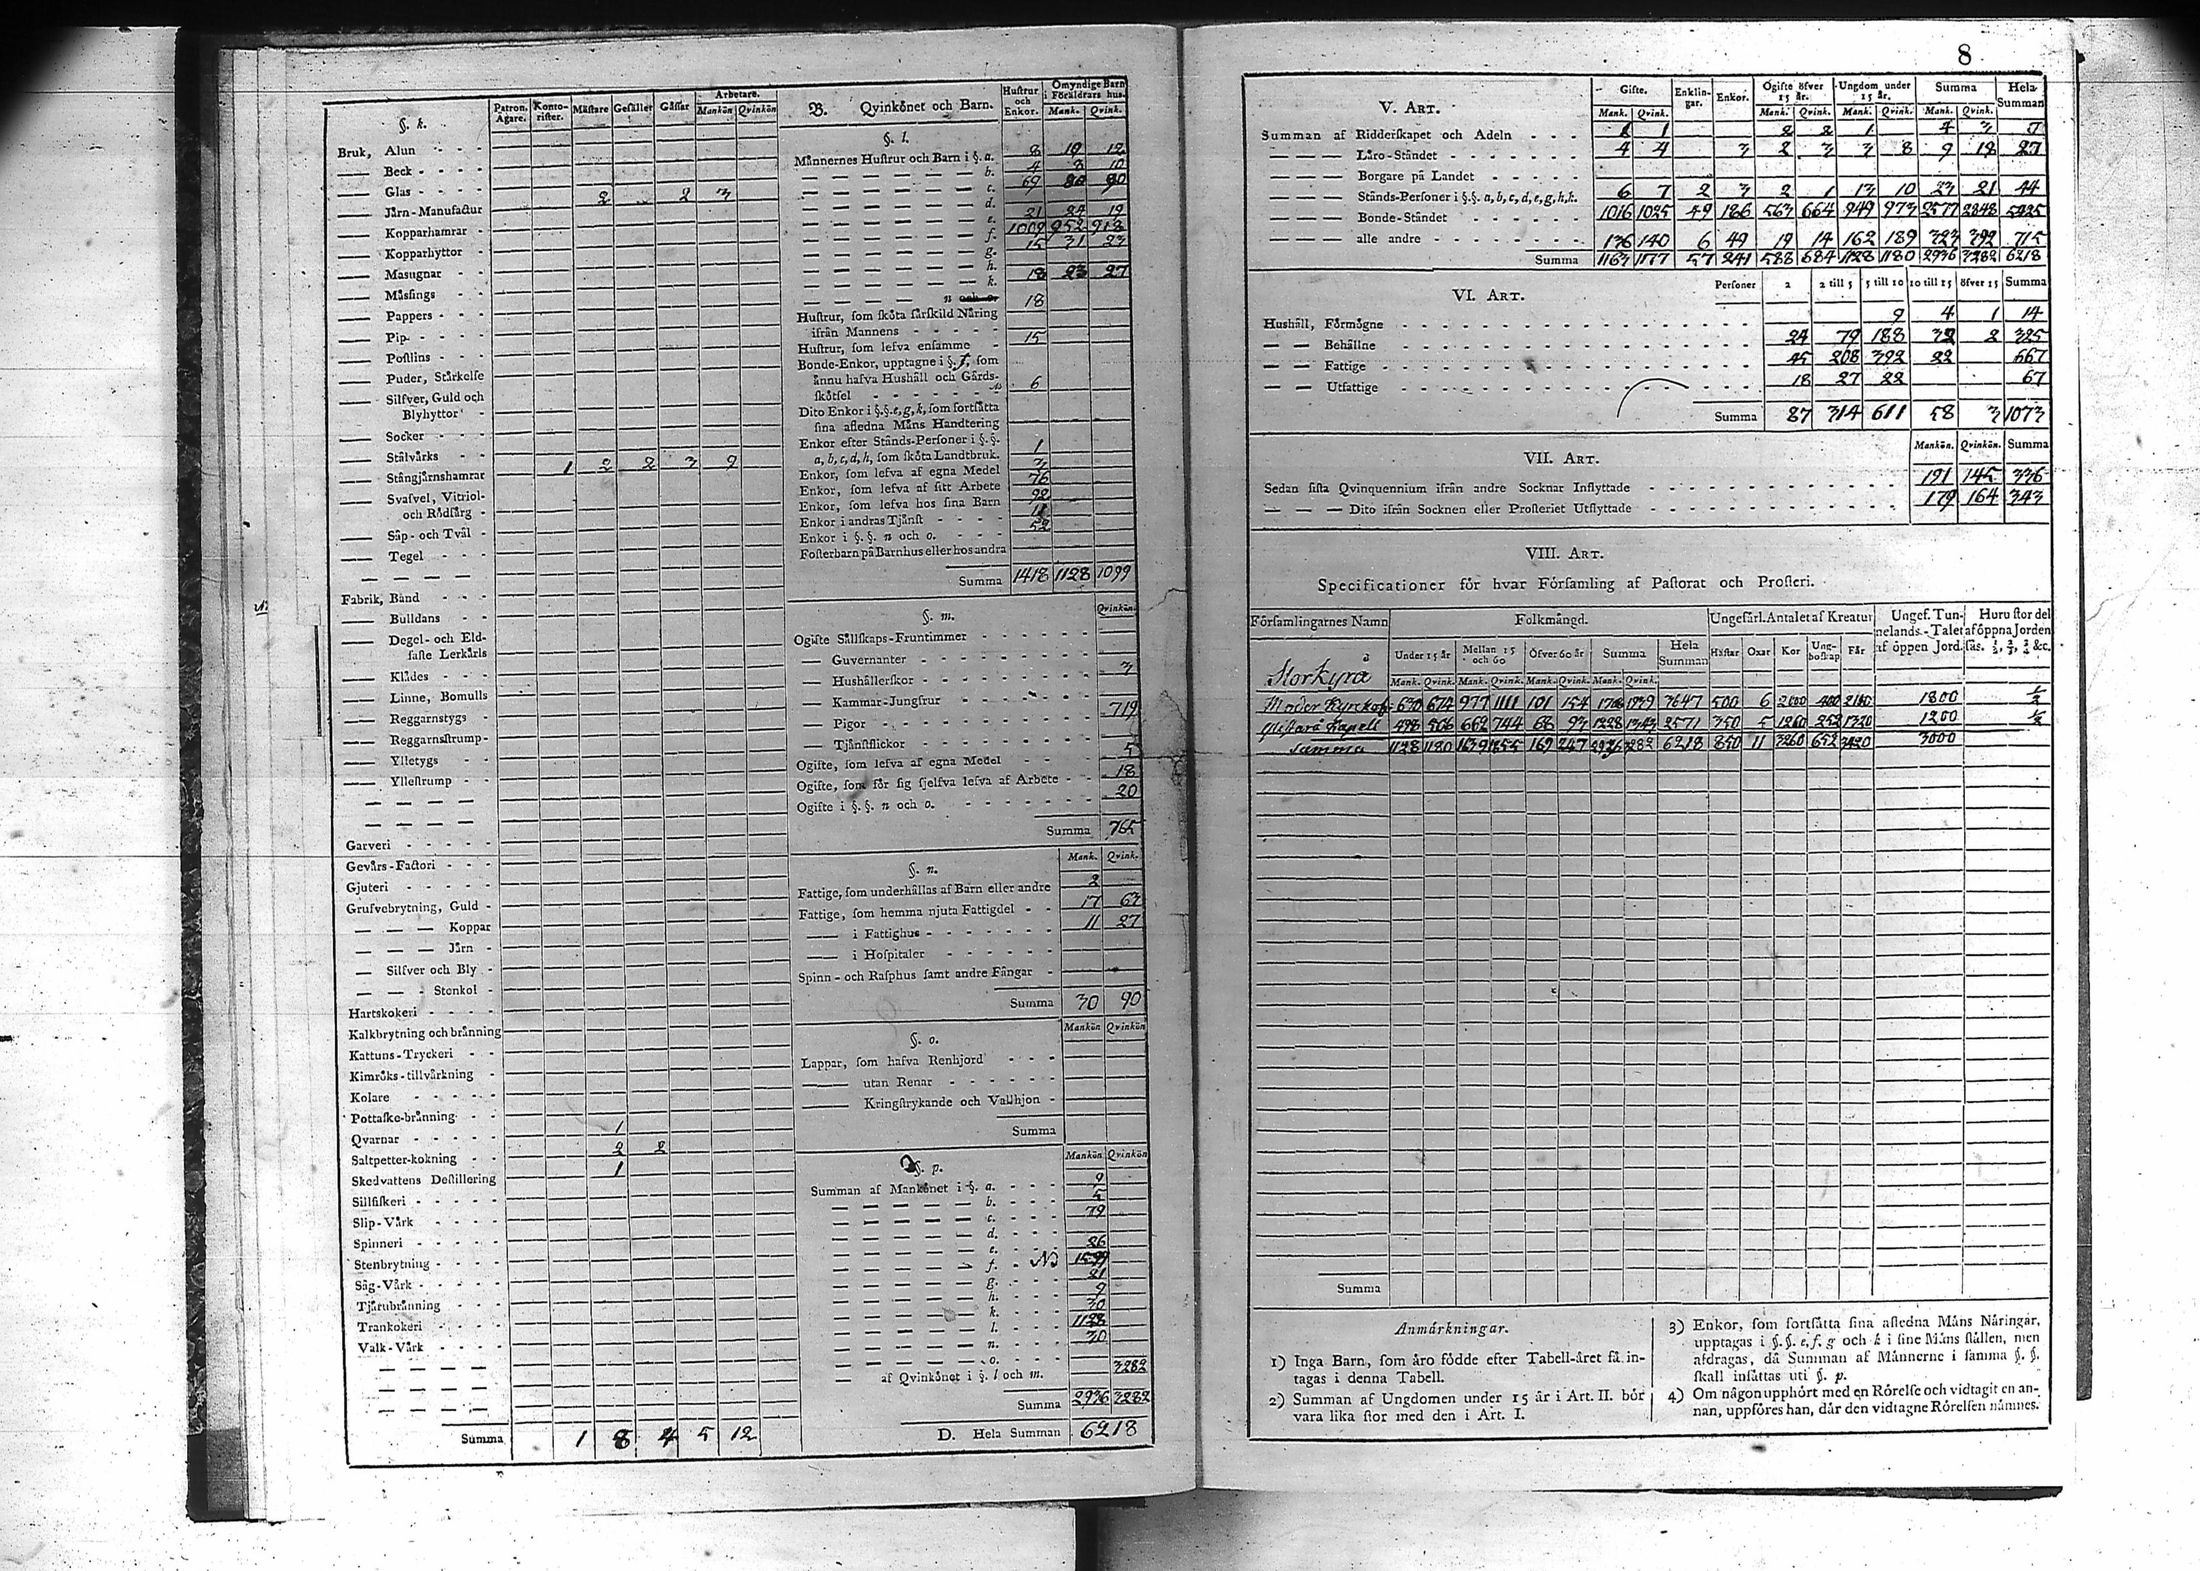 §. k.
Patron. Ägare.
Kontorister.
Mästare
Gesäller
Gåssar
Arbetare.
Mankön Qvinkön
Bruk, Alun
Beck
Glas
2 2 3
Järn-Manufactur
Kopparhamrar
Kopparhyttor
Masugnar
Mässings
Pappers
Pip
Postlins
Puder, Stärkelse
Silfver, Guld och
Blyhyttor
Socker
Stålvärks
Stångjärnshamrar 1 2 2 3 9
Svafvel, Vitriol-
och Rödfärg
Såp- och Tvål
Tegel
Fabrik, Band
Bulldans
Degel- och Eld-
faste Lerkärls
Klädes
Linne, Bomulls
Reggarnstygs
Reggarnsstrump-
Ylletygs
Yllestrump
Garveri
Gevårs-Factori
Gjuteri
Grufvebrytning, Guld
Koppar
Järn
Silfver och Bly
Stenkol
Hartskokeri
Kalkbrytning och bränning
Kattuns-Tryckeri
Kimröks-tillvårkning
Kolare
Pottaske-bränning
Qvarnar 1
Saltpetter-kokning 2 2
Skedvattens Destillering 1
Sillfiskeri
Slip-Vårk
Spinneri
Stenbrytning
Såg-Vårk
Tjärubränning
Trankokeri
Valk-Vårk
Summa 1 8 4 5 12
B. Qvinkönet och Barn.
Hustrur och Enkor.
Omyndige Barn i Föräldrars hus.
Mank. Qvink.
§. l.
Männernes Hustrur och Barn i §. a. 8 19 12
b. 4 8 10
c. 69 80 90
d.
e. 21 24 19
f. 1009 952 918
g. 15 31 23
h.
k. 18 23 27
n och o. 18
Hustrur, som sköta särskild Näring
ifrån Mannens
Hustrur, som lefva ensamme 15
Bonde-Enkor, upptagne i §. f, som
ännu hafva Hushåll och Gårds-
skötsel 6
Dito Enkor i §.§. e, g, k, som fortsätta
sina afledna Måns Handtering
Enkor efter Stånds-Personer i §.§.
a, b, c, d, h, som sköta Landtbruk. 1
Enkor, som lefva af egna Medel 3
Enkor, som lefva af sitt Arbete 76
Enkor, som lefva hos sina Barn 92
Enkor i andras Tjänst 11
Enkor i §. §. n och o. 52
Fosterbarn på Barnhus eller hos andra
Summa 1418 1128 1099
§. m.
Qvinkön.
Ogifte Sällskaps-Fruntimmer
Guvernanter
Hushållerskor 3
Kammar-Jungfrur
Pigor 719
Tjänstflickor
Ogifte, som lefva af egna Medel 5
Ogifte, som för sig sjelfva lefva af Arbete 18
Ogifte i §. §. n och o. 20
Summa 765
§. n.
Mank. Qvink.
Fattige, som underhållas af Barn eller andre 2
Fattige, som hemma njuta Fattigdel 17 63
i Fattighus 11 27
i Hospitaler
Spinn- och Rasphus samt andre Fångar
Summa 30 90
§. o.
Mankön Qvinkön
Lappar, som hafva Renhjord
utan Renar
Kringstrykande och Vallhjon
Summa
§. p.
Mankön Qvinkön
Summan af Mankönet i §. a. 9
b. 5
c. 79
d.
e. 26
f. 1599
g. 21
h. 9
k. 30
l. 1128
n. 30
o.
af Qvinkönet i §. l och m. 3282
Summa 2936 3282
D. Hela Summan 6218
8
V. ART.
Gifte. Enklingar. Enkor. Ogifte öfver 15 år. Ungdom under 15 år. Summa Hela Summan
Mank. Qvink. Mank. Qvink. Mank. Qvink. Mank. Qvink.
Summan af Ridderskapet och Adeln 1 1 2 2 1 4 3 7
Läro-Ståndet 4 4 3 2 3 3 8 9 18 27
Borgare på Landet
Stånds-Personer i §.§. a, b, c, d, e, g, h, k. 6 7 2 3 2 1 13 10 23 21 44
Bonde-Ståndet 1016 1025 49 186 563 664 949 973 2577 2848 5425
alle andre 136 140 6 49 19 14 162 189 323 392 715
Summa 1163 1177 57 241 588 684 1128 1180 2936 3282 6218
VI. ART.
Personer 2 2 till 5 5 till 10 10 till 15 öfver 15 Summa
Hushåll, Förmögne 9 4 1 14
Behållne 24 79 188 32 2 325
Fattige 45 208 392 22 667
Utfattige 18 27 22 67
Summa 87 314 611 58 3 1073
VII. ART.
Mankön. Qvinkön. Summa
Sedan sista Qvinquennium ifrån andre Socknar Inflyttade 191 145 336
Dito ifrån Socknen eller Prosteriet Utflyttade 179 164 343
VIII. ART.
Specificationer för hvar Församling af Pastorat och Prosteri.
Församlingarnes Namn
Folkmängd.
Ungefärl. Antalet af Kreatur
Ungef. Tunnelands-Talet af öppen Jord.
Huru stor del af öppna Jorden sås. ½, ⅔, ¾ &c.
Under 15 år Mellan 15 och 60 Öfver 60 år Summa Hela Summan Hästar Oxar Kor Ungboskap Får
Mank. Qvink. Mank. Qvink. Mank. Qvink. Mank. Qvink.
Storkyrå
Moder Kyrckof 630 674 977 1111 101 154 1708 1939 3647 500 6 2000 400 2100 1800 ½
Klistarå Kapell 498 506 662 744 68 93 1228 1343 2571 350 5 1260 252 1320 1200 ½
Summa 1128 1180 1639 1855 169 247 2936 3282 6218 850 11 3260 652 3420 3000
Summa
Anmärkningar.
1) Inga Barn, som äro födde efter Tabell-året få intagas i denna Tabell.
2) Summan af Ungdomen under 15 år i Art. II. bör
vara lika stor med den i Art. I.
3) Enkor, som fortsätta sina afledna Måns Näringar,
upptagas i §. §. e, f, g och k i sine Måns ställen, men
afdragas, då Summan af Männerne i samma §. §.
skall insättas uti §. p.
4) Om någon upphört med en Rörelse och vidtagit en an-
nan, uppföres han, där den vidtagne Rörelsen nämnes.